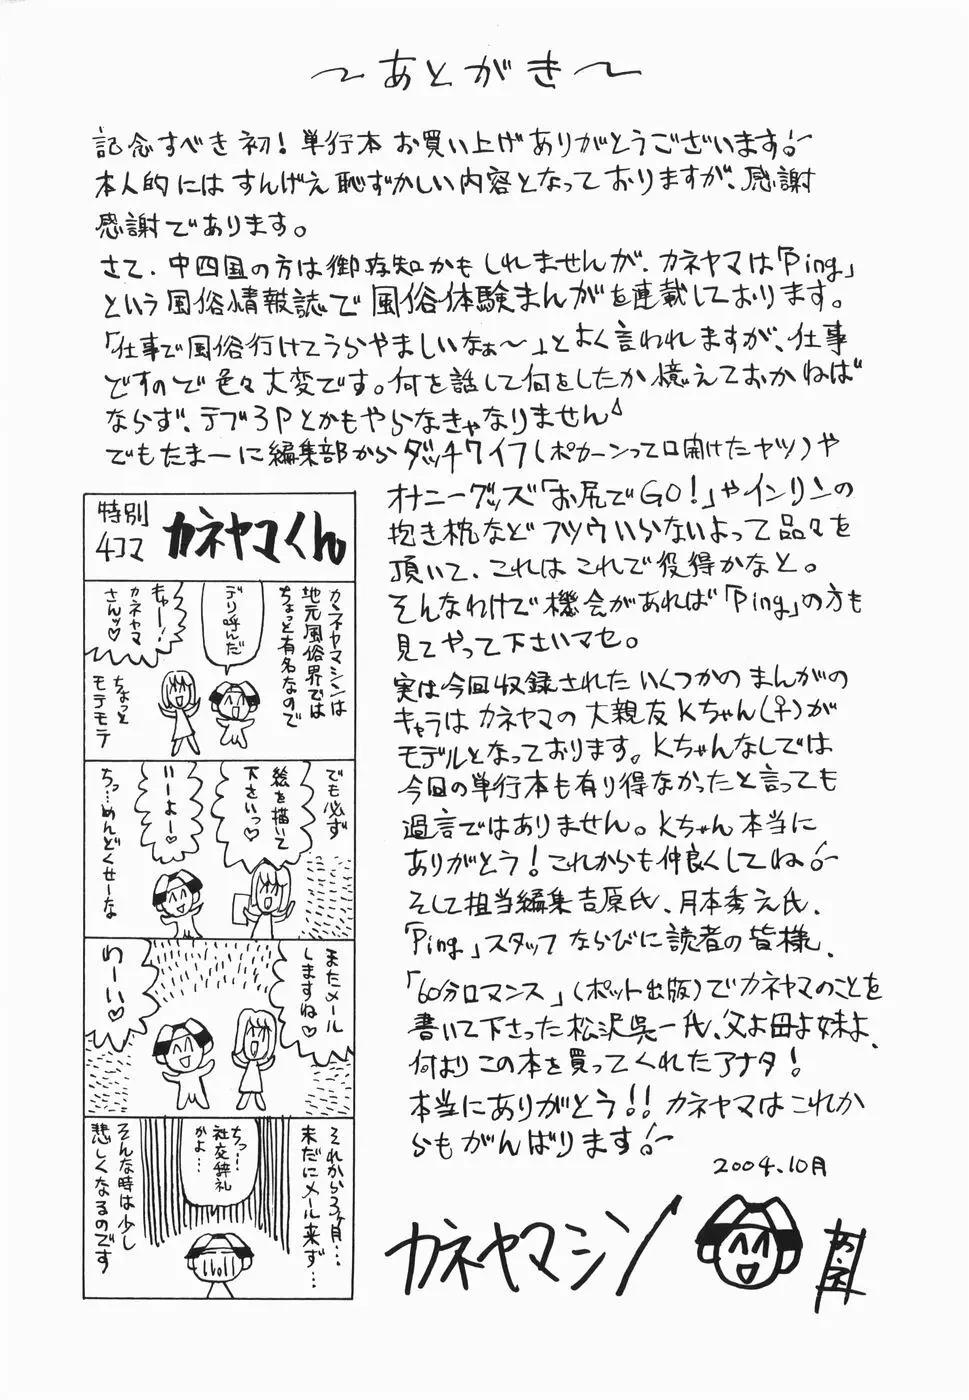 ～あとがき～
記念すべき初！単行本お買い上げありがとうございます！
本人的にはすんげえ恥ずかしい内容となっておりますが、感謝
感謝であります。
さて、中四国の方は御存知かもしれませんが、カネヤマは「Ping」
という風俗情報誌で風俗体験まんがを連載しております。
「仕事で風俗行けてうらやましいなぁ～」とよく言われますが、仕事
ですので色々大変です。何を話して何をしたか憶えておかねば
ならず、デブ3Pとかもやらなきゃなりません
でもたまーに編集部からダッチワイフ(ポカーンって口開けたヤツ)や
オナニーグッズ「お尻でGO！」やインリンの
抱き枕などフツウいらないよって品々を
頂いて、これはこれで役得かなと。
そんなわけで機会があれば「Ping」の方も
見てやって下さいマセ。
実は今回収録されたいくつかのまんがの
キャラはカネヤマの大親友Kちゃん(♀)が
モデルとなっております。Kちゃんなしでは
今回の単行本も有り得なかったと言っても
過言ではありません。Kちゃん本当に
ありがとう！これからも仲良くしてね！
そして担当編集吉原氏、月本秀元氏、
「Ping」スタッフならびに読者の皆様、
「60分ロマンス」(ポット出版)でカネヤマのことを
書いて下さった松沢呉一氏、父よ母よ妹よ、
何よりこの本を買ってくれたアナタ！
本当にありがとう！！カネヤマはこれか
らもがんばります！
2004.10月
カネヤマシン
特別
4コマ
カネヤマくん
カネヤマシンは
地元風俗界では
ちょっと有名なので
デリ呼んだ
きゃー！
カネヤマ
さんッ♡
ちょっと
モテモテ
でも必ず
絵を描いて
下さいっ♡
いーよー♡
ちっ…めんどくせーな
またメール
しますね♡
わーい♡
それから3ヶ月…
未だにメール来ず…
ちっ…
社交辞礼
かよ…
そんな時は少し
悲しくなるのです